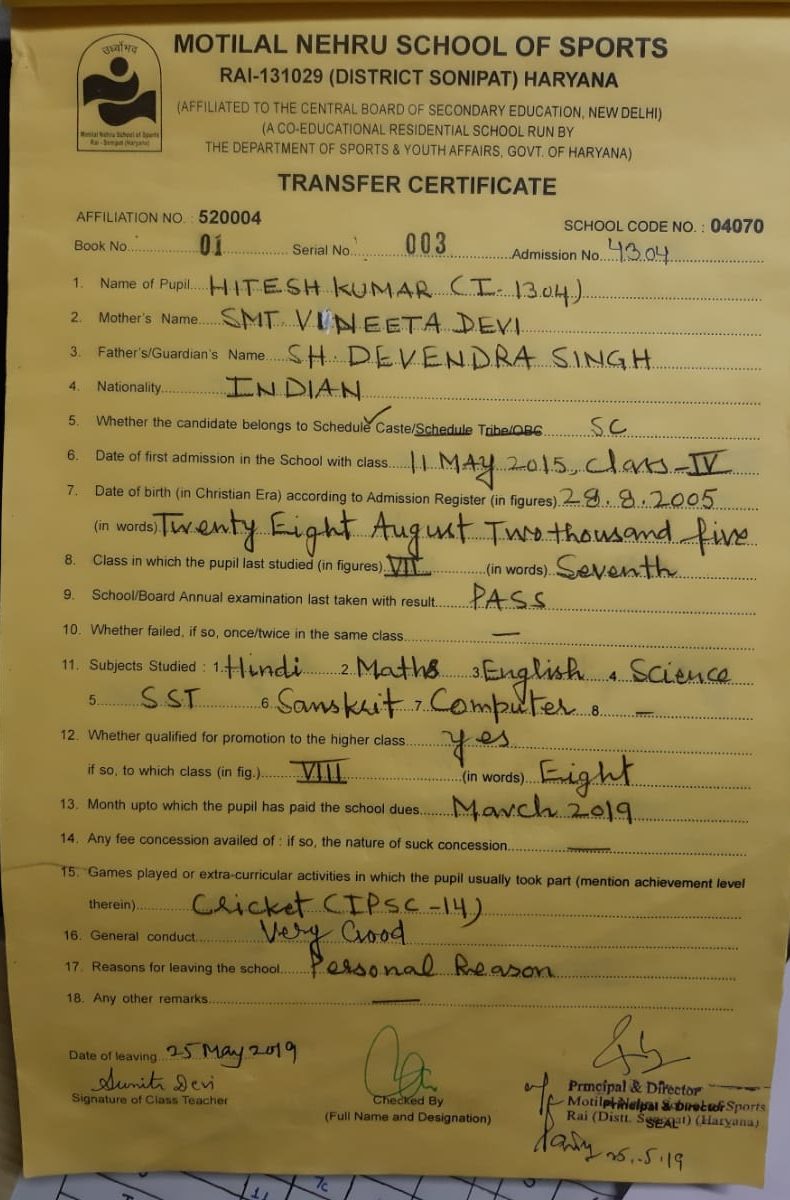 उर्ध्वोभव
Motilal Nehru School of Sports
Rai - Sonipat (Haryana)
MOTILAL NEHRU SCHOOL OF SPORTS
RAI-131029 (DISTRICT SONIPAT) HARYANA
(AFFILIATED TO THE CENTRAL BOARD OF SECONDARY EDUCATION, NEW DELHI)
(A CO-EDUCATIONAL RESIDENTIAL SCHOOL RUN BY
THE DEPARTMENT OF SPORTS & YOUTH AFFAIRS, GOVT. OF HARYANA)
TRANSFER CERTIFICATE
AFFILIATION NO. : 520004 SCHOOL CODE NO. : 04070
Book No. 01 Serial No. 003 Admission No. 4304
1. Name of Pupil HITESH KUMAR (I-1304)
2. Mother's Name SMT. VINEETA DEVI
3. Father's/Guardian's Name SH. DEVENDRA SINGH
4. Nationality INDIAN
5. Whether the candidate belongs to Schedule Caste/Schedule Tribe/OBC SC
6. Date of first admission in the School with class 11 MAY 2015, Class-IV
7. Date of birth (in Christian Era) according to Admission Register (in figures) 28.8.2005
(in words) Twenty Eight August Two thousand five
8. Class in which the pupil last studied (in figures) VII (in words) Seventh
9. School/Board Annual examination last taken with result PASS
10. Whether failed, if so, once/twice in the same class —
11. Subjects Studied : 1. Hindi 2. Maths 3. English 4. Science
5. SST 6. Sanskrit 7. Computer 8. —
12. Whether qualified for promotion to the higher class yes
if so, to which class (in fig.) VIII (in words) Eight
13. Month upto which the pupil has paid the school dues March 2019
14. Any fee concession availed of : if so, the nature of suck concession —
15. Games played or extra-curricular activities in which the pupil usually took part (mention achievement level
therein) Cricket (IPSC-14)
16. General conduct Very Good
17. Reasons for leaving the school Personal Reason
18. Any other remarks —
Date of leaving 25 May 2019
Sunita Devi
Signature of Class Teacher
Checked By
(Full Name and Designation)
Principal & Director
Motilal Nehru School of Sports
Principal & Director
Rai (Distt. Sonepat) (Haryana)
SEAL
25.5.19